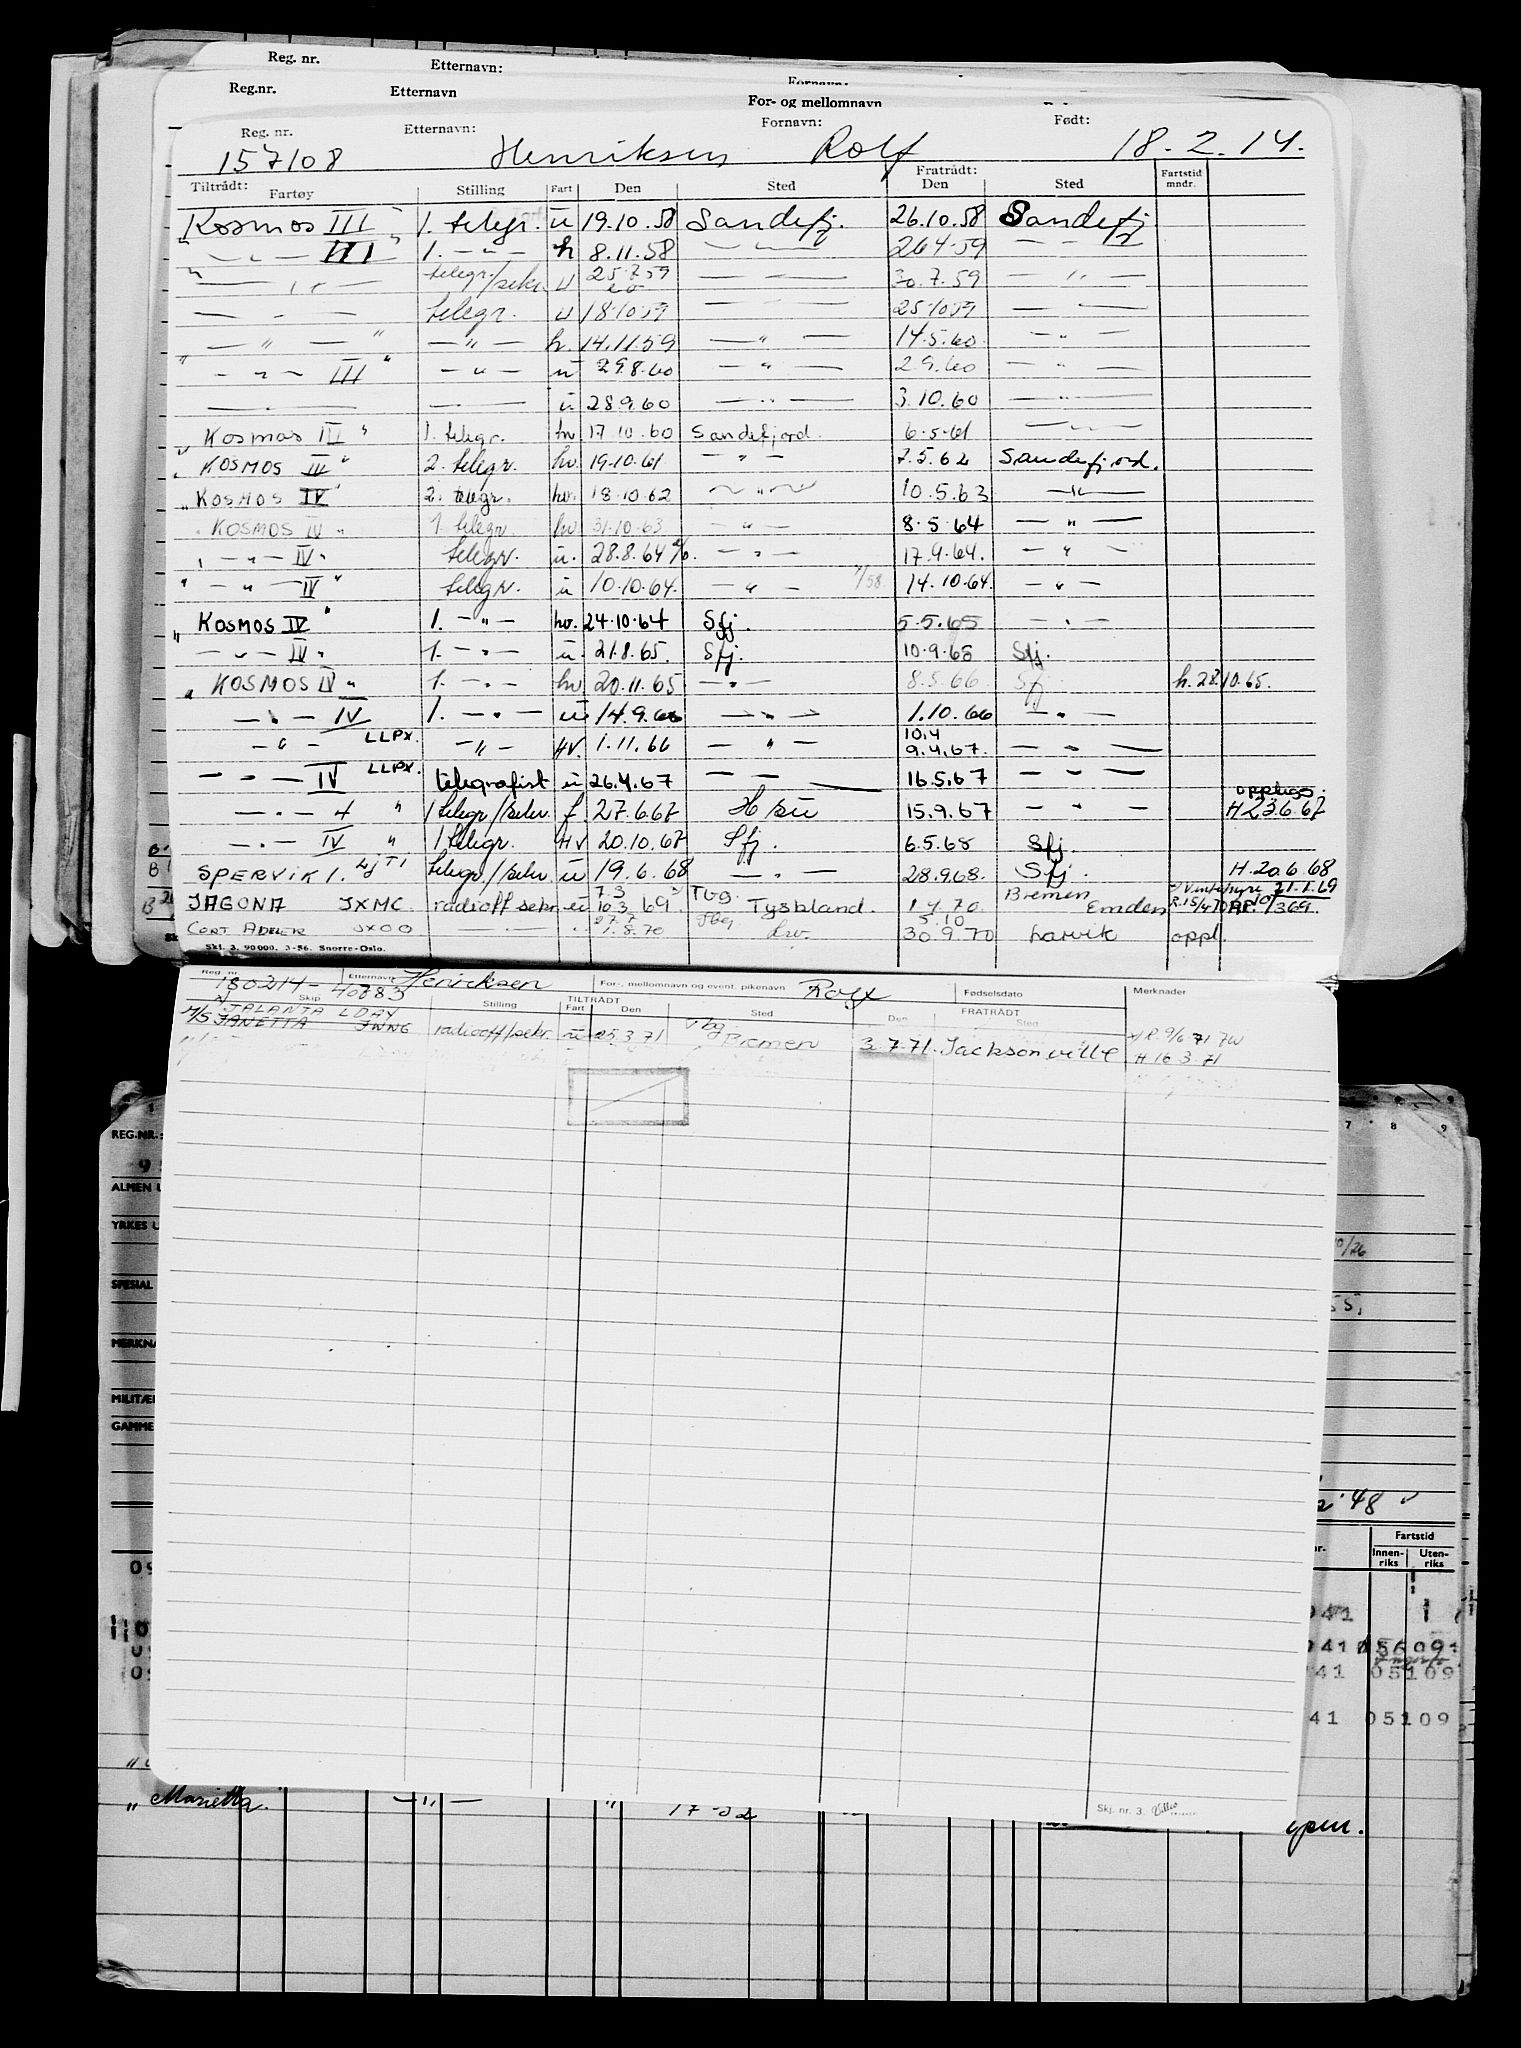 Reg. nr. Etternavn: Fornavn:
Reg.nr. Etternavn For- og mellomnavn
Reg. nr. Etternavn: Fornavn: Født:
157108 Henriksen Rolf 18.2.14.
Tiltrådt: Fratrådt: Fartstid
Fartøy Stilling Fart Den Sted Den Sted mndr.
Kosmos III 1. telegr. u 19.10.58 Sandefj. 26.10.58 Sandefj.
" — " — III " 1. — " — h 8.11.58 — " — 26.4.59 — " —
" — " — telegr/sekr. u 25.7.59 — " — 30.7.59 — " —
— " — telegr. u 18.10.59 — " — 25.10.59 — " —
— " — " — " — h. 14.11.59 — " — 14.5.60 — " —
" — " — III " — " — u 29.8.60 — " — 2.9.60 — " —
— " — — " — u. 28.9.60 — " — 3.10.60 — " —
" Kosmos III " 1. telegr. hv 17.10.60 Sandefjord. 6.5.61 — " —
" KOSMOS IV " 2. telegr. hv. 19.10.61 — " — 7.5.62 Sandefjord.
" KOSMOS IV " 2. telegr. hv. 18.10.62 — " — 10.5.63 — " —
" KOSMOS IV " 1. telegr hv 31.10.63 — " — 8.5.64 — " —
" — " — IV " telegr. u. 28.8.64 — " — 17.9.64. — " —
" — " — IV " telegr. u 10.10.64. — " — 14.10.64. — " —
" KOSMOS IV " 1. — " — hv. 24.10.64 Sfj. 5.5.65 — " —
— " — IV " 1. — " — u. 21.8.65. Sfj. 10.9.65 Sfj.
" KOSMOS IV " 1. — " — hv 20.11.65 — " — 8.5.66 Sfj h. 28.10.65.
— " — IV 1. — " — u 14.9.66 — " — 1.10.66 — " —
— " — LLPX. — " — HV. 1.11.66 — " — 10.4 9.4.67. — " —
— " — IV LLPX. telegrafist u 26.4.67 — — 16.5.67 — " —
opplegg.
— " — 4 " 1 telegr/sekr f 27.6.67 15.9.67 — " — H 23.6.67
— " — IV " 1 telegr. HV 20.10.67 Sfj. 6.5.68 Sfj.
SPERVIK 1. telegr/sekr u 19.6.68 — " — 28.9.68. Sfj. H. 20.6.68
7.3 Tbg. Bremen 21.1.69
JAGONA JXMC radioff sekr u 10.3.69 Tyskland. 1.4.70 Emden
27.7 5.10
CORT ADELER JXOO — " — 1.8.70 hv. 30.9.70 Larvik oppl.
Skj. 3. 90 000. 3-56. Snorre-Oslo.
Reg. nr. Etternavn For-, mellomnavn og event. pikenavn Fødselsdato Merknader
180214-40883 Henriksen Rolf
Skip Stilling TILTRÅDT FRATRÅDT
Fart Den Sted Den Sted
JALANTA LDAY
M/S JANETTA JWNG radiooff/sekr. u 25.3.71 Tbg Bremen 3.7.71. Jacksonville R. 9/6.71
H 16.3.71
Skj. nr. 3.
REG.NR.: 7 8 9
9
ALMEN U
YRKES U
10/26
SPESIAL
MERKNA
MILITÆR
GAMME
'48
Fartstid
Innen-riks Uten-riks
941
941 056091
41 05109
41 05109
" Marietta. — " — " 17